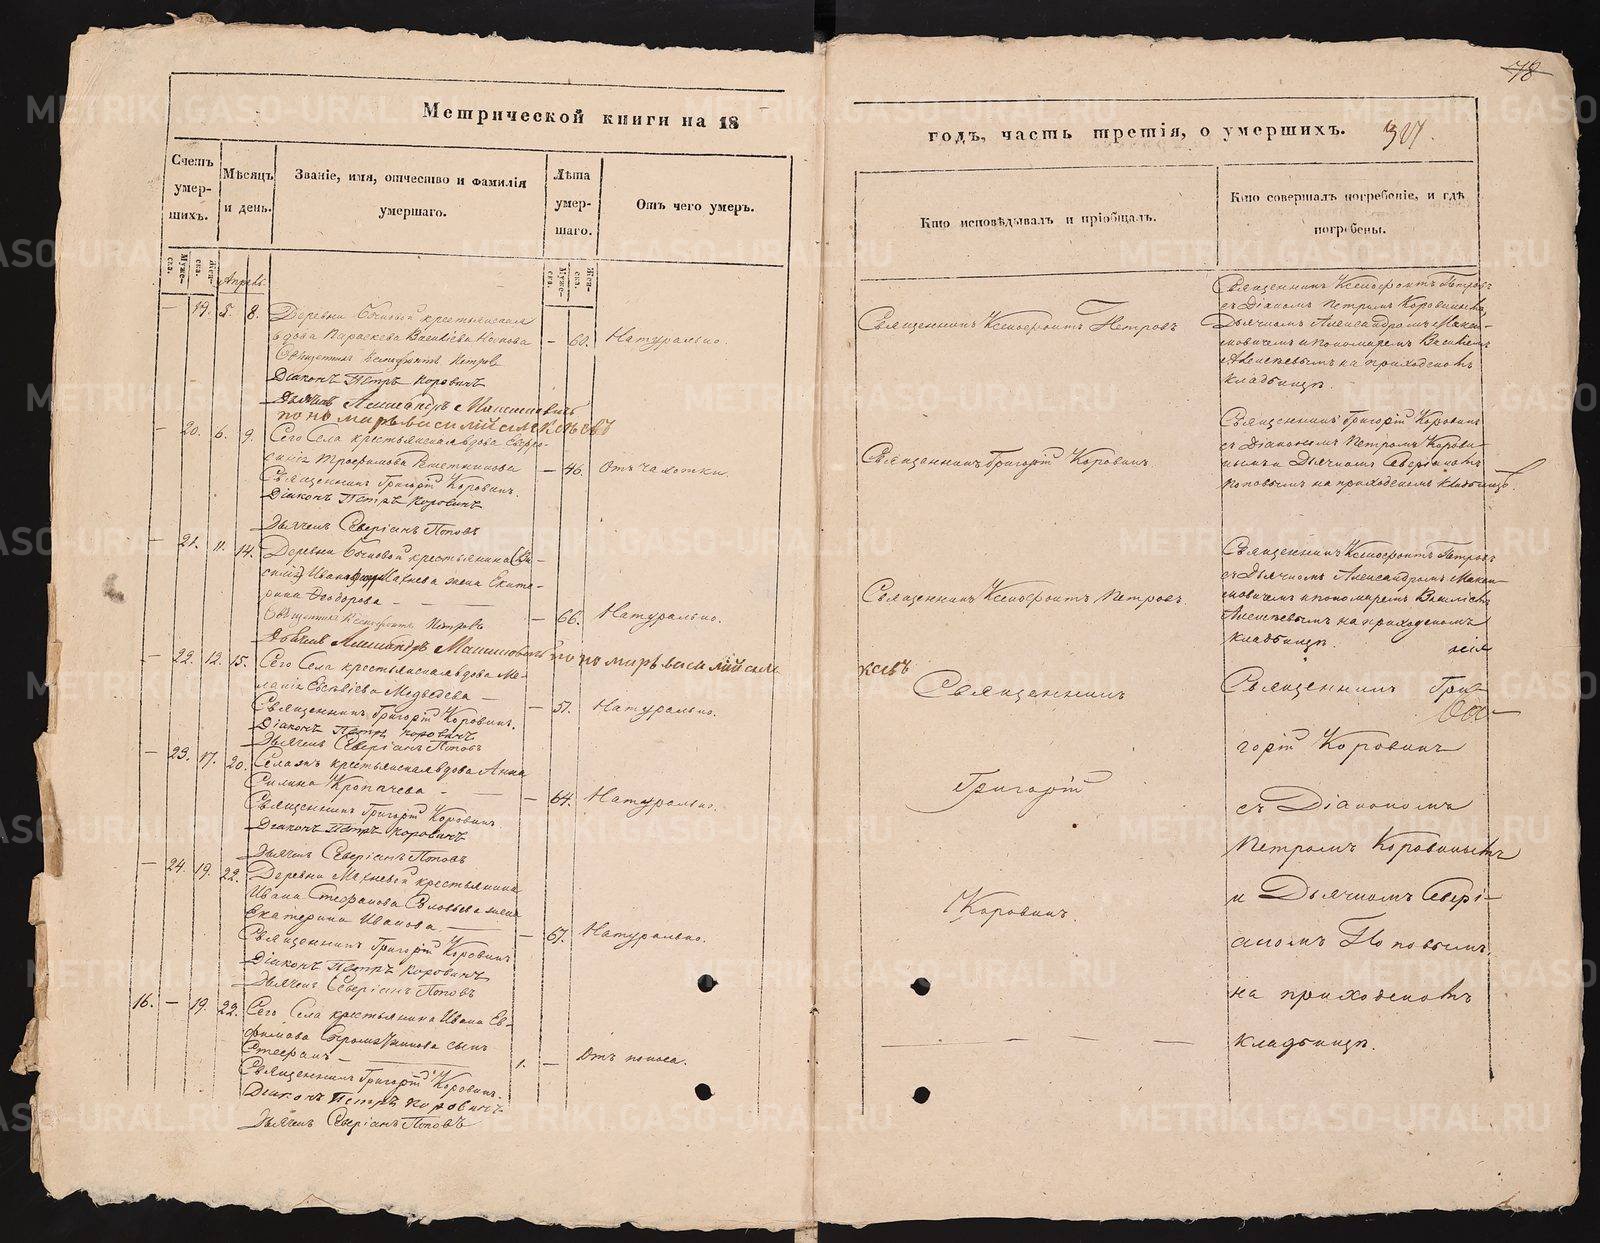 Метрической книги на 18
Счетъ умерших.
Мѣсяцъ и день.
Званіе, имя, отчество и фамилія умершаго.
Лѣта умершаго.
Отъ чего умеръ.
Апрель.
19. 5. 8.
Деревни Бочковой крестьянская
вдова Параскева Васильева
— 60. Натурально.
Священникъ Ксенофонтъ Петров
Діаконъ Петръ Коровинъ
Дьячекъ Александръ Максимовичь
пономарь василій алексѣевъ
— 20. 6. 9.
Сего Села крестьянская вдова Евфро-
синія Трофимова Решетникова
— 46. Отъ чахотки.
Священникъ Григорій Коровинъ.
Діаконъ Петръ Коровинъ
Дьячекъ Северіанъ Поповъ
— 21. 11. 14.
Деревни Бочковой крестьянина Ва-
силія Иванова Махнева жена Екате-
рина Ѳеодорова —
— 66. Натурально.
Священникъ Ксенофонтъ Петровъ
Дьячекъ Александръ Максимовичь пономарь василій алек
— 22. 12. 15.
Сего Села крестьянская вдова Ме-
ланія Евсевіева Медведева —
— 57. Натурально.
Священникъ Григорій Коровинъ.
Діаконъ Петръ Коровинъ
Дьячекъ Северіанъ Поповъ
— 23. 17. 20.
Села крестьянская вдова Анна
Силина Кропачева —
— 64. Натурально.
Священникъ Григорій Коровинъ
Діаконъ Петръ Коровинъ
Дьячекъ Северіанъ Поповъ
— 24. 19. 22.
Деревни Махневой крестьянина
Ивана Стефанова жена
Екатерина Иванова —
— 67. Натурально.
Священникъ Григорій Коровинъ
Діаконъ Петръ Коровинъ
Дьячекъ Северіанъ Поповъ
16. — 19. 22.
Сего Села крестьянина Ивана Ев-
фимова сынъ
Стефанъ —
1. — Отъ поноса.
Священникъ Григорій Коровинъ.
Діаконъ Петръ Коровинъ
Дьячекъ Северіанъ Поповъ
78
годъ, часть третія, о умершихъ.
Кто исповѣдывалъ и пріобщалъ.
Кто совершалъ погребеніе, и гдѣ погребены.
Священникъ Ксенофонтъ Петровъ
Священникъ Ксенофонтъ Петровъ
съ Діакономъ Петромъ Коровинымъ,
Дьячкомъ Александромъ Макси-
мовичемъ и пономаремъ Василіемъ
Алексѣевымъ на приходскомъ
кладбищѣ.
Священникъ Григорій Коровинъ
Священникъ Григорій Коровинъ
съ Діакономъ Петромъ Корови-
нымъ и Дьячкомъ Северіаномъ
Поповымъ на приходскомъ кладбищѣ.
Священникъ Ксенофонтъ Петровъ
Священникъ Ксенофонтъ Петровъ
съ Дьячкомъ Александромъ Макси-
мовичемъ и пономаремъ Василіемъ
Алексѣевымъ на приходскомъ
кладбищѣ.
ксѣвъ
Священникъ
Григорій
Коровинъ.
Священникъ Гри-
горій Коровинъ
съ Діакономъ
Петромъ Коровинымъ
и Дьячкомъ Севері-
аномъ Поповымъ
на приходскомъ
кладбищѣ.
METRIKI.GASO-URAL.RU